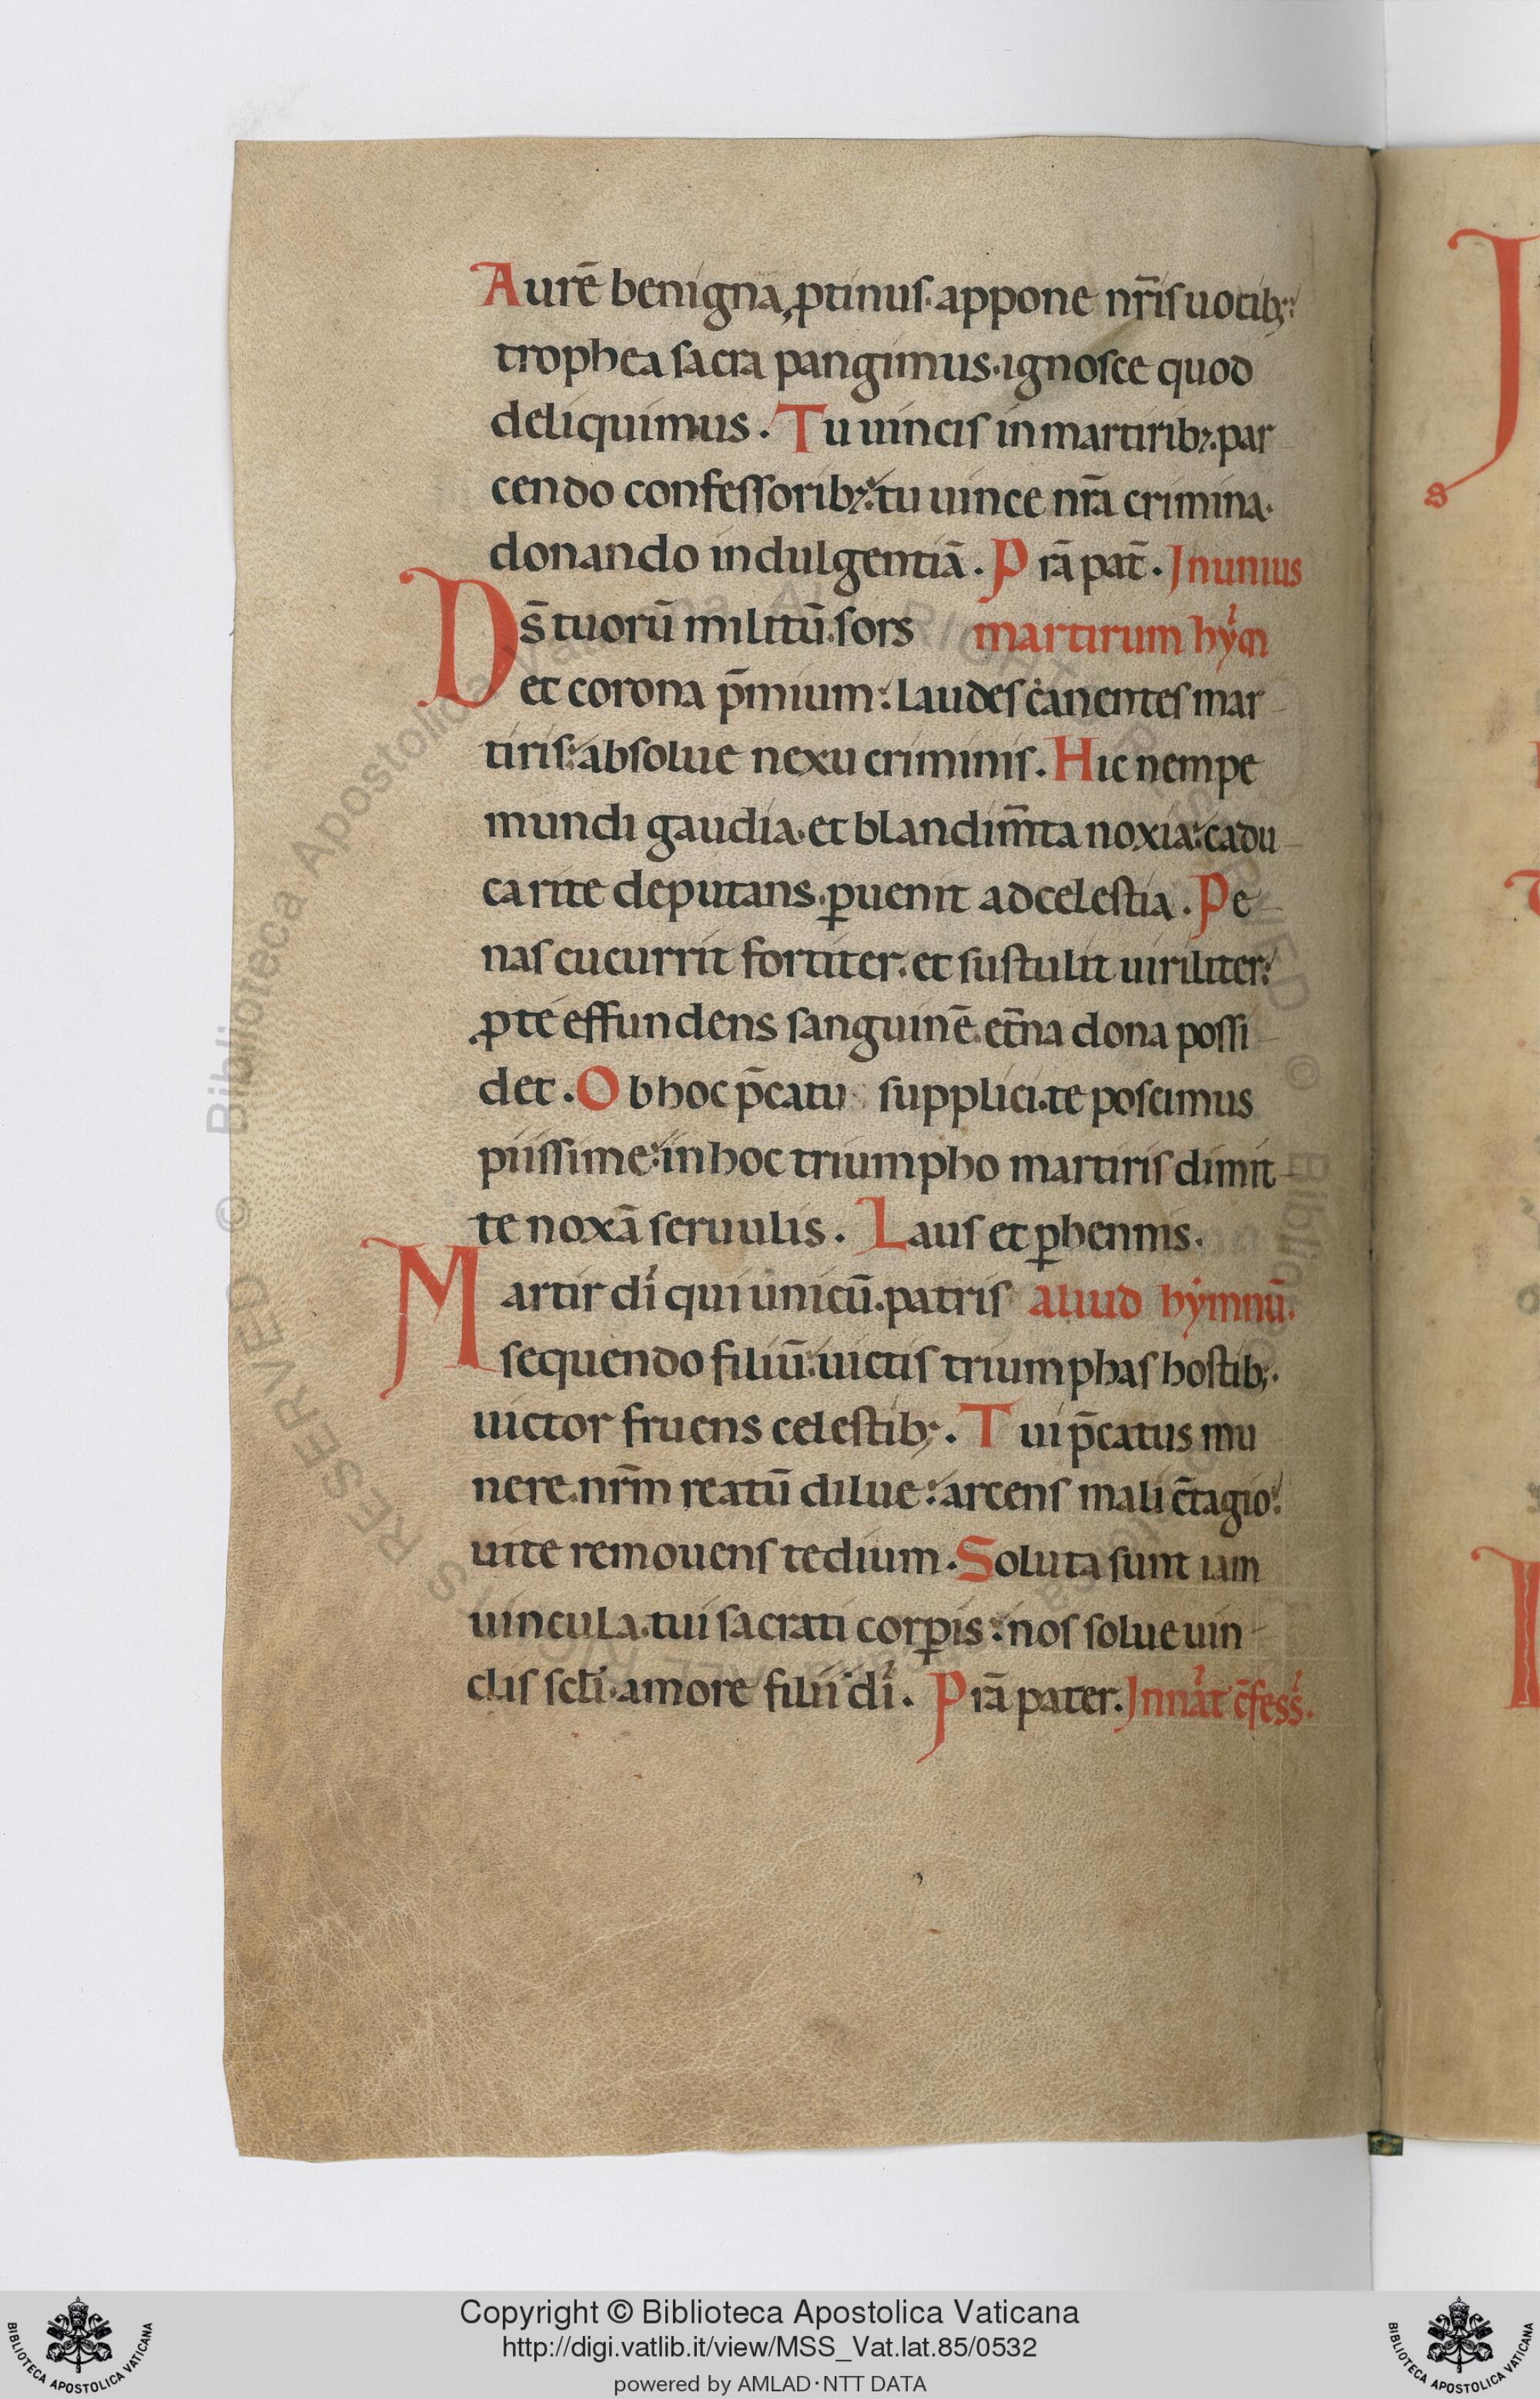 Aurē benignā ꝓtinus· appone nr̄is uocib;:
trophea sacra pangimus· ignosce quod
deliquimus. Tu uincis in martirib;· par
cendo confessorib;: tu uince nr̄a crimina·
donando indulgentiā. P rā pat̄. In unius
Ds̄ tuorū militū· sors martirum hẏm
et corona p̄mium: laudes canentes mar
tiris: absolue nexu criminis. Hic nempe
mundi gaudia· et blandim̄ta noxia: cadu
ca rite deputans· ꝑuenit ad celestia. Pe
nas cucurrit fortiter· et sustulit uiriliter:
ꝓ te effundens sanguinē· et̄na dona possi
det. Ob hoc p̄catu supplici· te poscimus
piissime: in hoc triumpho martiris dimit
te noxā seruulis. Laus et ꝑhennis.
Martir dī qui unicū· patris aliud hẏmnū.
sequendo filiū: uictis triumphas hostib;·
uictor fruens celestib;. Tui p̄catus mu
nere· nr̄m reatū dilue: arcens mali c̄tagio:
uite remouens tedium. Soluta sunt iam
uincula· tui sacrati corꝑis: nos solue uin
clis scl̄i· amore filii dī. P rā pater. In nāt c̄fess̄.
Copyright © Biblioteca Apostolica Vaticana
http://digi.vatlib.it/view/MSS_Vat.lat.85/0532
powered by AMLAD·NTT DATA
BIBLIOTECA APOSTOLICA VATICANA
BIBLIOTECA APOSTOLICA VATICANA